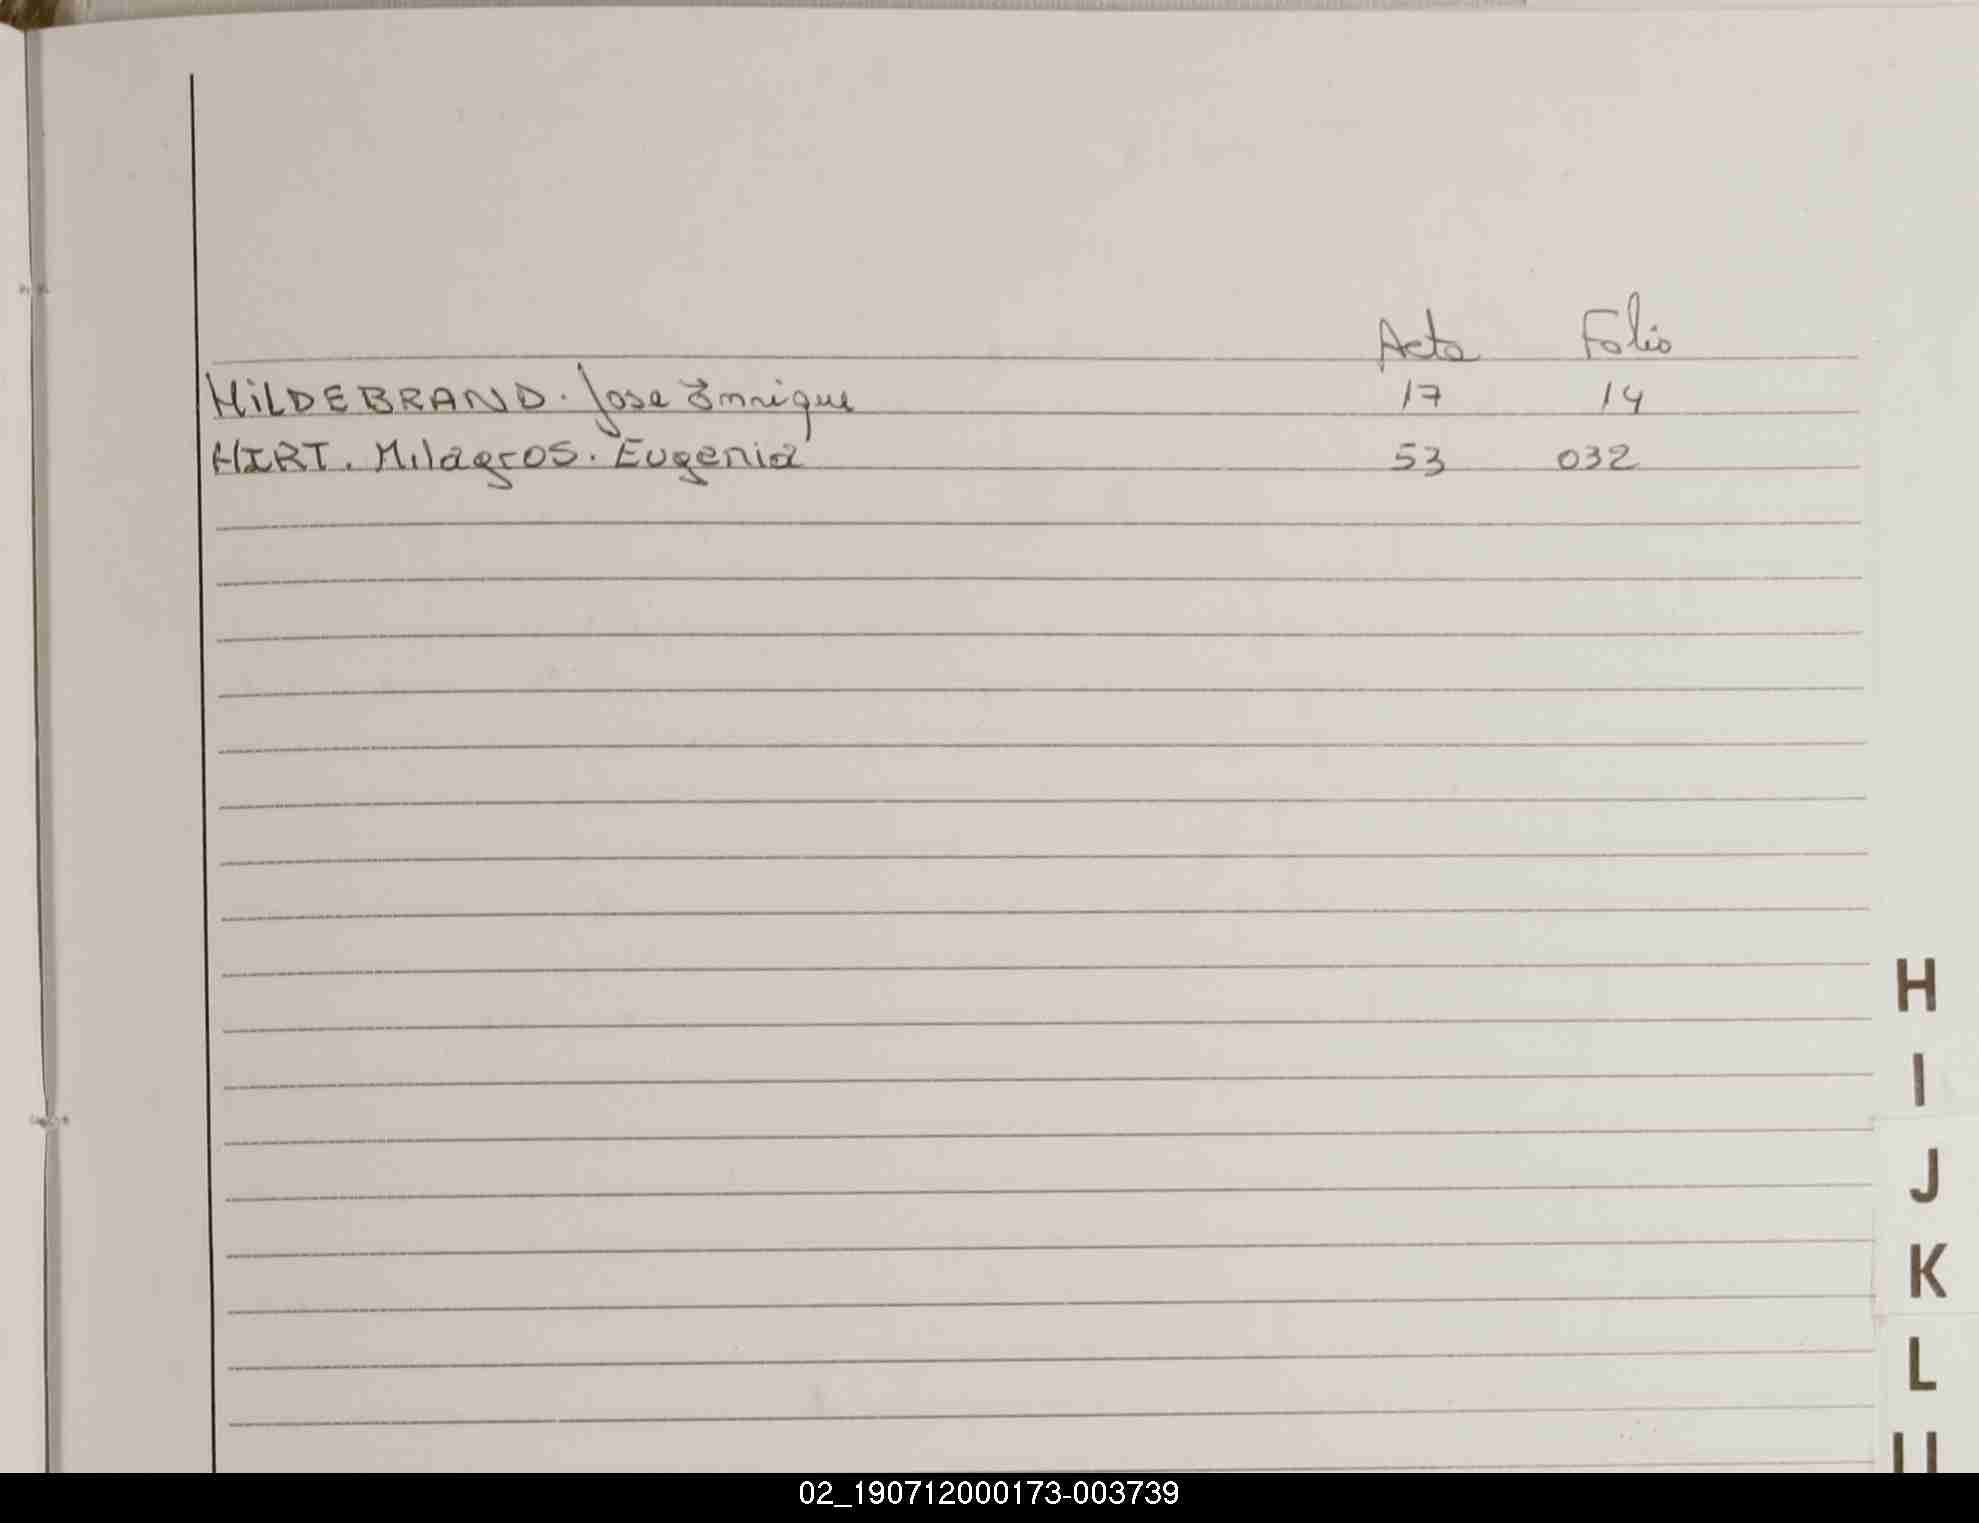 Acta Folio
HILDEBRAND. Jose Enrique 17 14
HIRT. Milagros. Eugenia 53 032
H
I
J
K
L
02_190712000173-003739